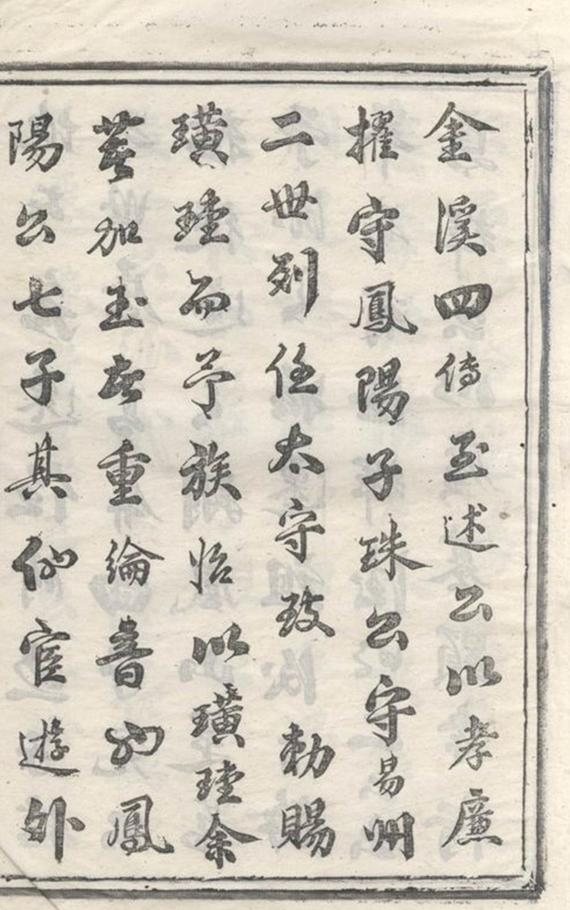 金溪四傳至述公以孝廉
擢守鳳陽子珠公守易州
二世列任太守致 勅賜
璜而予族始以璜余
蓋加玉者重綸音也鳳
陽公七子其他宦遊外